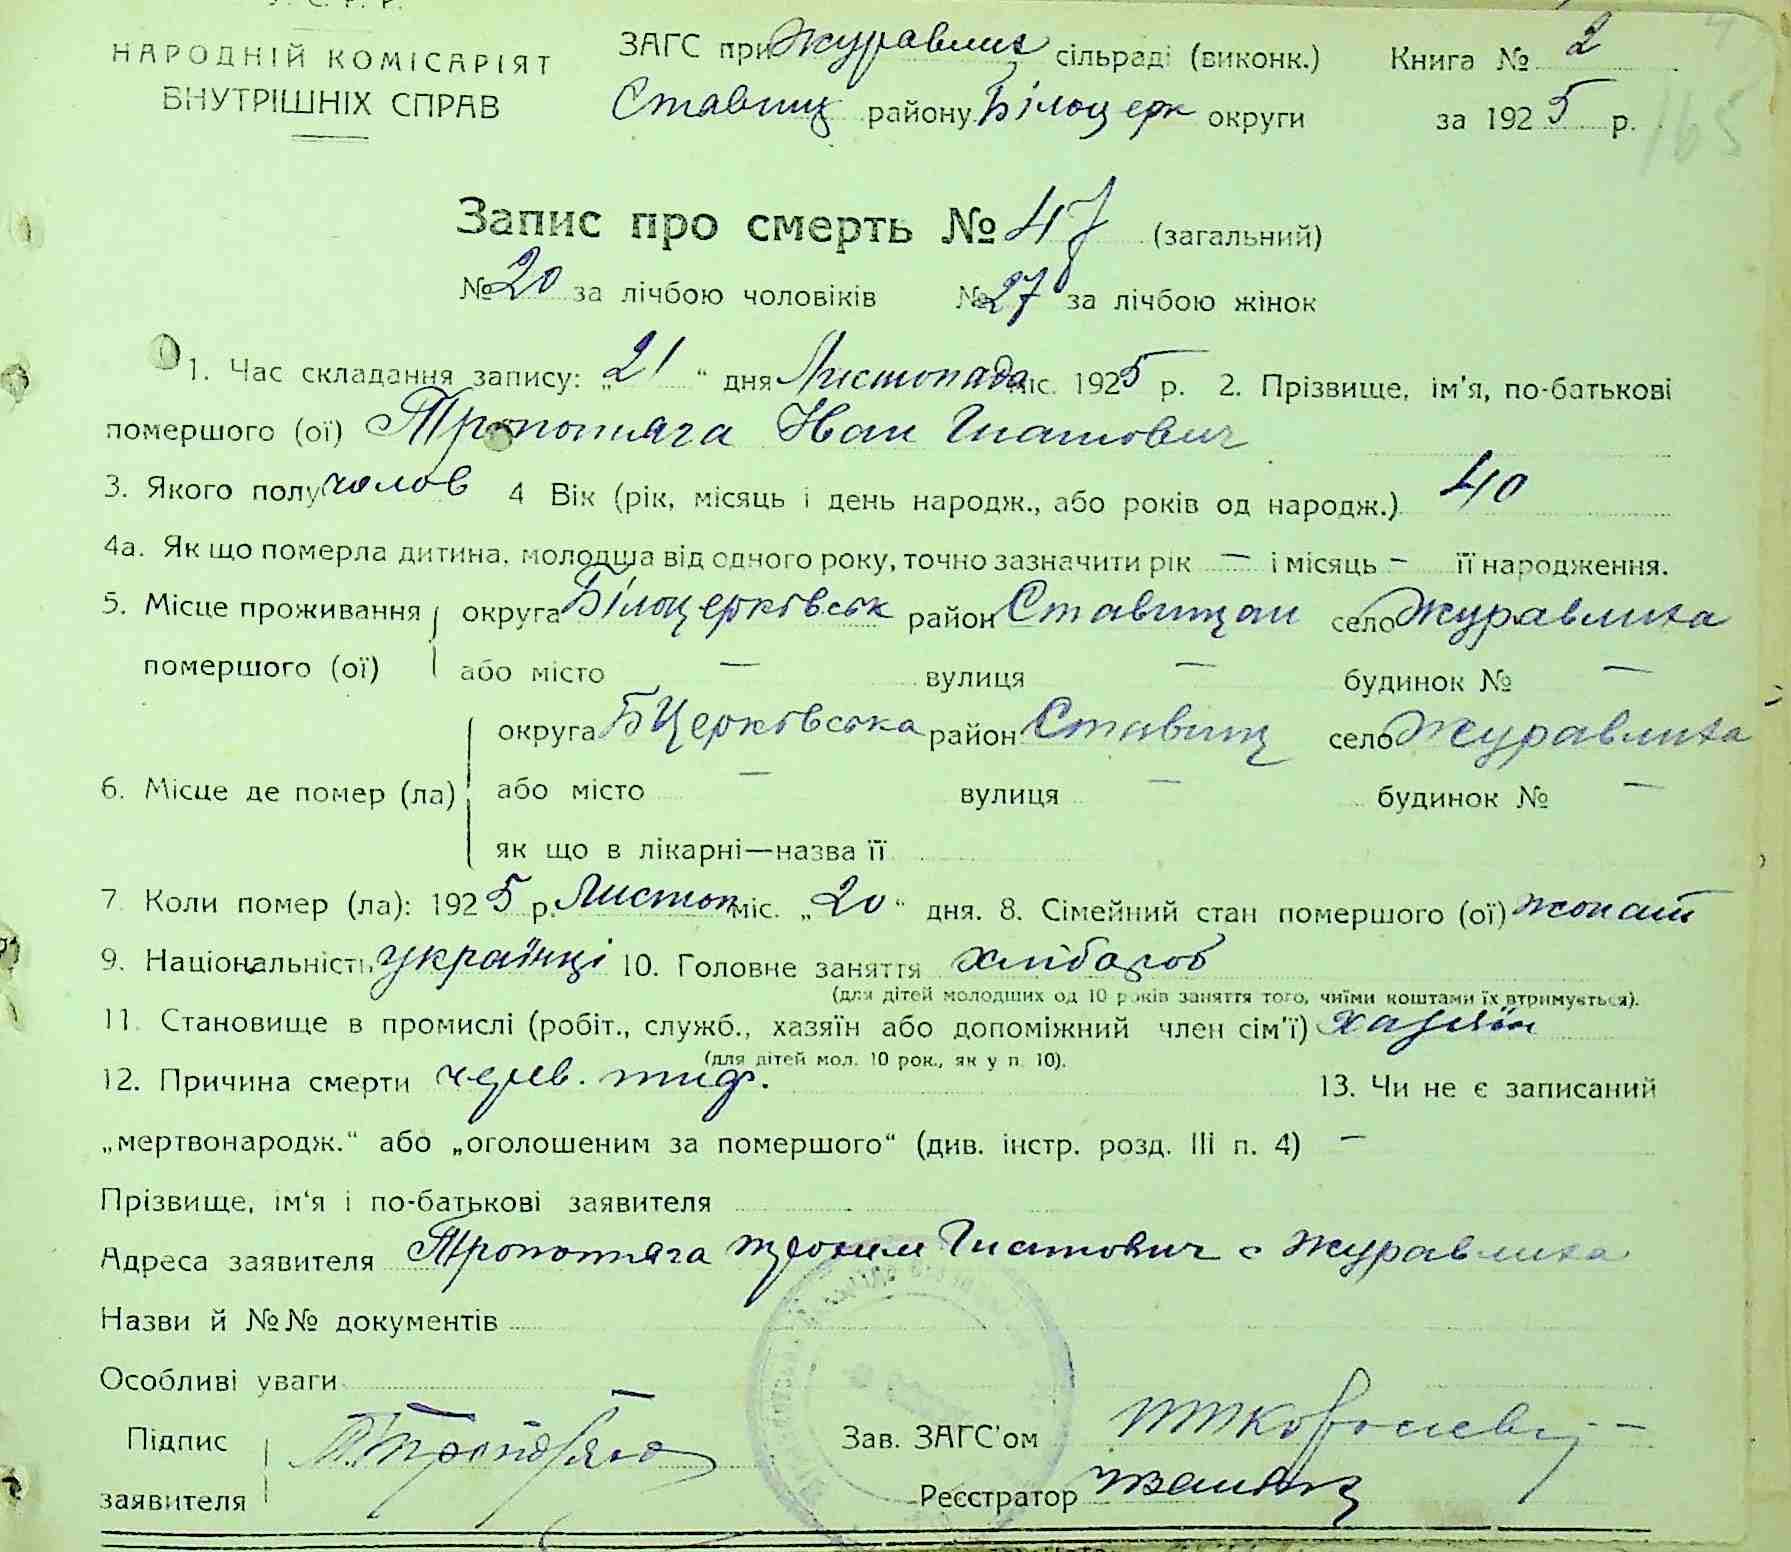 У. С. Р. Р.
НАРОДНІЙ КОМІСАРІЯТ
ВНУТРІШНІХ СПРАВ
ЗАГС при Журавлих сільраді (виконк.) Книга № 2
Ставищ району Білоцерк округи за 1925 р.
165
Запис про смерть № 47 (загальний)
№ 20 за лічбою чоловіків № 27 за лічбою жінок
1. Час складання запису: „21“ дня Листопада міс. 1925 р. 2. Прізвище, ім'я, по-батькові
помершого (ої) Тропотяга Иван Гнатович
3. Якого полу челов 4 Вік (рік, місяць і день народж., або років од народж.) 40
4а. Як що померла дитина, молодша від одного року, точно зазначити рік — і місяць — її народження.
5. Місце проживання округа Білоцерківськ район Ставищан село Журавлиха
помершого (ої) або місто — вулиця — будинок № —
округа БЦерківська район Ставищ село Журавлиха
6. Місце де помер (ла) або місто — вулиця — будинок № —
як що в лікарні—назва її
7. Коли помер (ла): 1925 р. Листоп міс. „20“ дня. 8. Сімейний стан помершого (ої) жонат
9. Національність українці 10. Головне заняття хлібороб
(для дітей молодших од 10 років заняття того, чиїми коштами їх втримується).
11. Становище в промислі (робіт., служб., хазяїн або допоміжний член сім'ї) хазяїн
(для дітей мол. 10 рок., як у п. 10).
12. Причина смерти черев. тиф. 13. Чи не є записаний
„мертвонародж.“ або „оголошеним за помершого“ (див. інстр. розд. III п. 4) —
Прізвище, ім'я і по-батькові заявителя
Адреса заявителя Тропотяга Гнатович с Журавлиха
Назви й №№ документів
Особливі уваги
Підпис Зав. ЗАГС'ом
заявителя Реєстратор